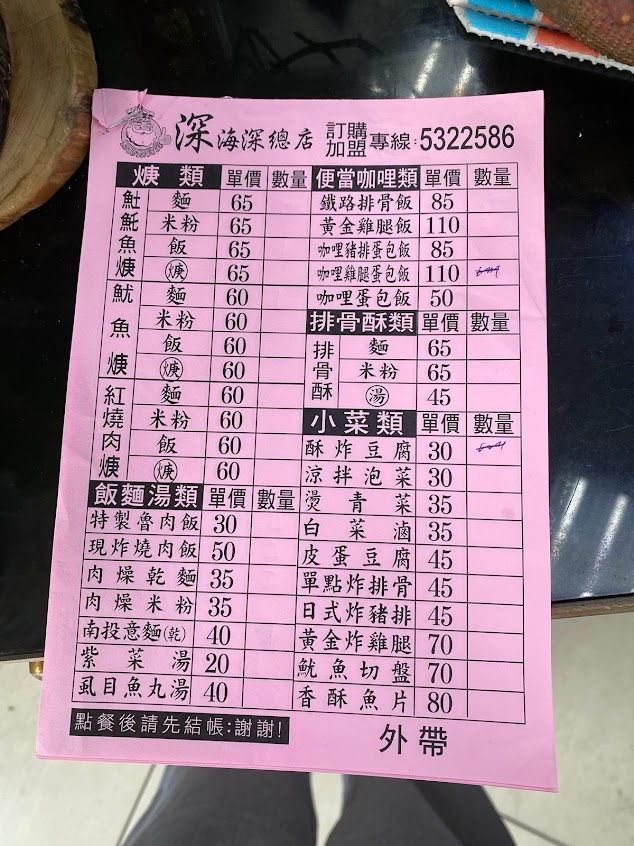 深海深總店 訂購加盟專線:5322586
焿類 單價 數量
魠魠魚焿 麵 65
米粉 65
飯 65
焿 65
魷魚焿 麵 60
米粉 60
飯 60
焿 60
紅燒肉焿 麵 60
米粉 60
飯 60
焿 60
飯麵湯類 單價 數量
特製魯肉飯 30
現炸燒肉飯 50
肉燥乾麵 35
肉燥米粉 35
南投意麵(乾) 40
紫菜湯 20
虱目魚丸湯 40
點餐後請先結帳:謝謝!
便當咖哩類 單價 數量
鐵路排骨飯 85
黃金雞腿飯 110
咖哩豬排蛋包飯 85
咖哩雞腿蛋包飯 110
咖哩蛋包飯 50
排骨酥類 單價 數量
排骨酥 麵 65
米粉 65
湯 45
小菜類 單價 數量
酥炸豆腐 30
涼拌泡菜 30
燙青菜 35
白菜滷 35
皮蛋豆腐 45
單點炸排骨 45
日式炸豬排 45
黃金炸雞腿 70
魷魚切盤 70
香酥魚片 80
外帶